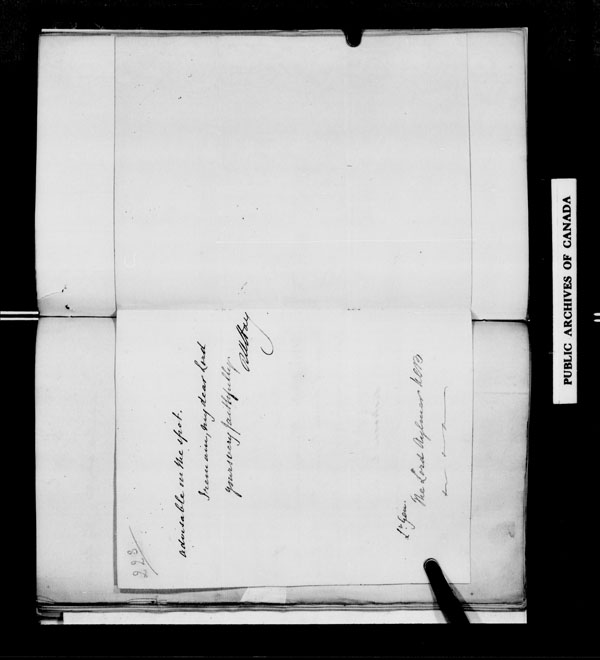 223
advisable on the spot.
I remain, my dear Lord
yours very faithfully
RW Hay
Lt Gen.
The Lord Aylmer KCB
PUBLIC ARCHIVES OF CANADA